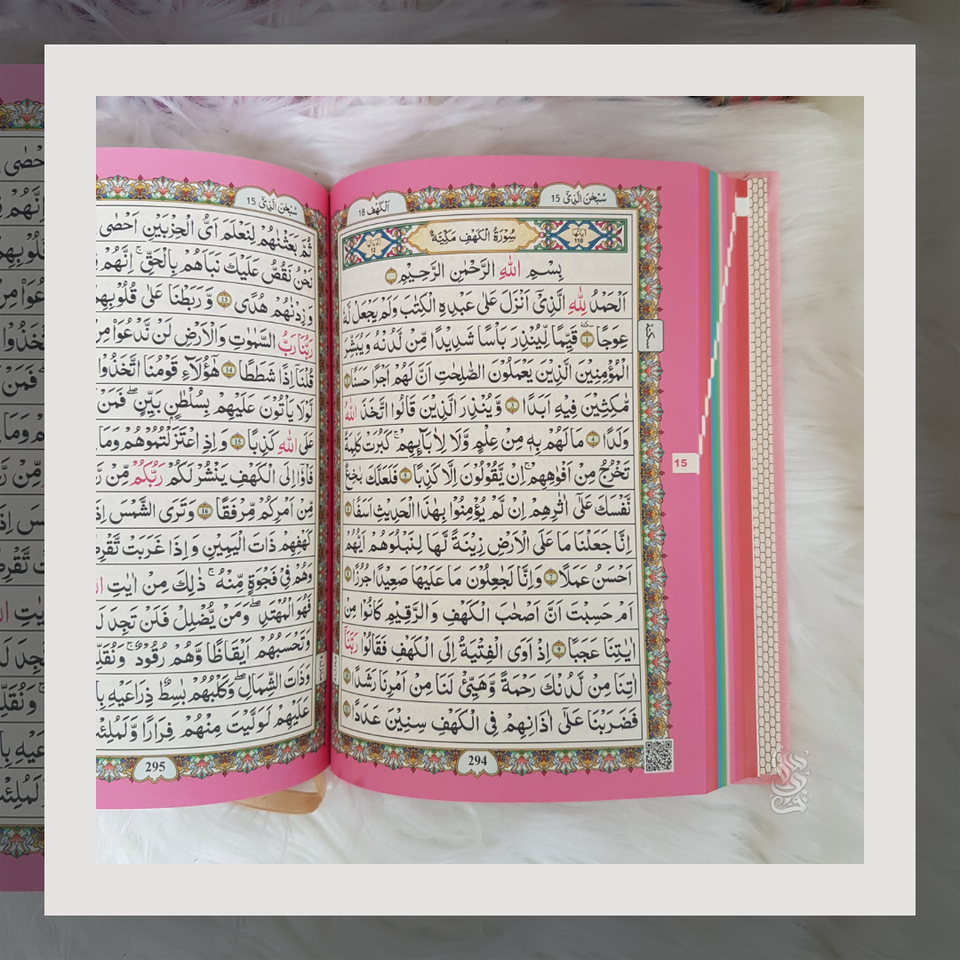 سُبْحٰنَ الَّذِیْٓ 15
اَلْكَهْف 18
سُوْرَةُ الْكَهْفِ مَكِّيَّةٌ
بِسْمِ اللّٰهِ الرَّحْمٰنِ الرَّحِيْمِ
اَلْحَمْدُ لِلّٰهِ الَّذِيْٓ اَنْزَلَ عَلٰى عَبْدِهِ الْكِتٰبَ وَلَمْ يَجْعَلْ لَّهٗ
عِوَجًا ۱ قَيِّمًا لِّيُنْذِرَ بَاْسًا شَدِيْدًا مِّنْ لَّدُنْهُ وَيُبَشِّرَ
الْمُؤْمِنِيْنَ الَّذِيْنَ يَعْمَلُوْنَ الصّٰلِحٰتِ اَنَّ لَهُمْ اَجْرًا حَسَنًا ۲
مّٰكِثِيْنَ فِيْهِ اَبَدًا ۳ وَّيُنْذِرَ الَّذِيْنَ قَالُوا اتَّخَذَ اللّٰهُ
وَلَدًا ۴ مَا لَهُمْ بِهٖ مِنْ عِلْمٍ وَّلَا لِاٰبَآئِهِمْ ۚ كَبُرَتْ كَلِمَةً
تَخْرُجُ مِنْ اَفْوَاهِهِمْ ۚ اِنْ يَّقُوْلُوْنَ اِلَّا كَذِبًا ۵ فَلَعَلَّكَ بَاخِعٌ
نَّفْسَكَ عَلٰٓى اٰثَارِهِمْ اِنْ لَّمْ يُؤْمِنُوْا بِهٰذَا الْحَدِيْثِ اَسَفًا ۶
اِنَّا جَعَلْنَا مَا عَلَى الْاَرْضِ زِيْنَةً لَّهَا لِنَبْلُوَهُمْ اَيُّهُمْ
اَحْسَنُ عَمَلًا ۷ وَاِنَّا لَجٰعِلُوْنَ مَا عَلَيْهَا صَعِيْدًا جُرُزًا ۸
اَمْ حَسِبْتَ اَنَّ اَصْحٰبَ الْكَهْفِ وَالرَّقِيْمِ كَانُوْا مِنْ
اٰيٰتِنَا عَجَبًا ۹ اِذْ اَوَى الْفِتْيَةُ اِلَى الْكَهْفِ فَقَالُوْا رَبَّنَآ
اٰتِنَا مِنْ لَّدُنْكَ رَحْمَةً وَّهَيِّئْ لَنَا مِنْ اَمْرِنَا رَشَدًا ۱۰
فَضَرَبْنَا عَلٰٓى اٰذَانِهِمْ فِى الْكَهْفِ سِنِيْنَ عَدَدًا ۱۱
294
15
سُبْحٰنَ الَّذِیْٓ 15
ثُمَّ بَعَثْنٰهُمْ لِنَعْلَمَ اَىُّ الْحِزْبَيْنِ اَحْصٰى
نَحْنُ نَقُصُّ عَلَيْكَ نَبَاَهُمْ بِالْحَقِّ ؕ اِنَّهُمْ
وَزِدْنٰهُمْ هُدًى ۱۳ وَّرَبَطْنَا عَلٰى قُلُوْبِهِمْ
رَبُّنَا رَبُّ السَّمٰوٰتِ وَالْاَرْضِ لَنْ نَّدْعُوَا۟ مِنْ
قُلْنَآ اِذًا شَطَطًا ۱۴ هٰٓؤُلَآءِ قَوْمُنَا اتَّخَذُوْا
لَوْلَا يَاْتُوْنَ عَلَيْهِمْ بِسُلْطٰنٍ بَيِّنٍ ؕ فَمَنْ
عَلَى اللّٰهِ كَذِبًا ۱۵ وَاِذِ اعْتَزَلْتُمُوْهُمْ وَمَا
فَاْوٗٓا اِلَى الْكَهْفِ يَنْشُرْ لَكُمْ رَبُّكُمْ مِّنْ
مِّنْ اَمْرِكُمْ مِّرْفَقًا ۱۶ وَتَرَى الشَّمْسَ اِذَا
كَهْفِهِمْ ذَاتَ الْيَمِيْنِ وَاِذَا غَرَبَتْ
وَهُمْ فِيْ فَجْوَةٍ مِّنْهُ ؕ ذٰلِكَ مِنْ اٰيٰتِ
فَهُوَ الْمُهْتَدِ ۚ وَمَنْ يُّضْلِلْ فَلَنْ تَجِدَ
وَتَحْسَبُهُمْ اَيْقَاظًا وَّهُمْ رُقُوْدٌ ۖ
وَذَاتَ الشِّمَالِ ۖ وَكَلْبُهُمْ بَاسِطٌ ذِرَاعَيْهِ
عَلَيْهِمْ لَوَلَّيْتَ مِنْهُمْ فِرَارًا
295